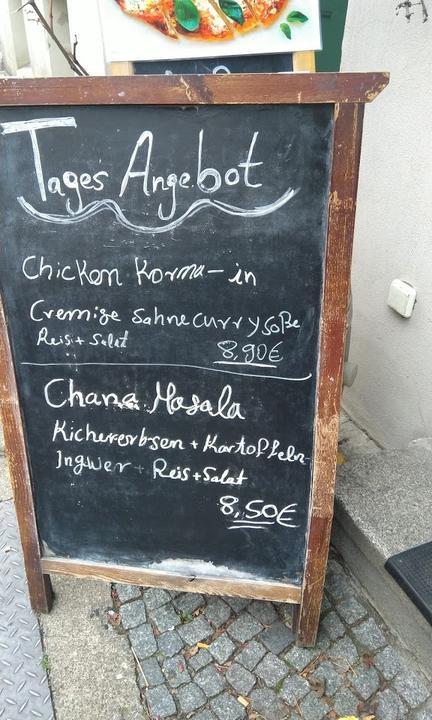 Tages Angebot
Chicken Korma - in
Cremige Sahnecurrysoße
Reis + Salat
8,90€
Chana Masala
Kichererbsen + Kartoffeln
Ingwer + Reis + Salat
8,50€